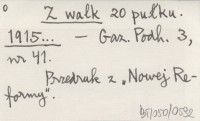 Z walk 20 pułku.
1915... — Gaz. Podh. 3,
nr 41.
Przedruk z „Nowej Re-
formy".